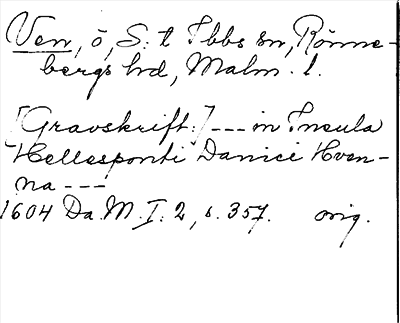 Ven, ö, S:t Ibbs sn, Rönne-
bergs hd, Malm. l.
[Gravskrift:] --- in Insula
Hellesponti Danici Hven-
na ---
1604 Da.M. I. 2, s. 357. orig.